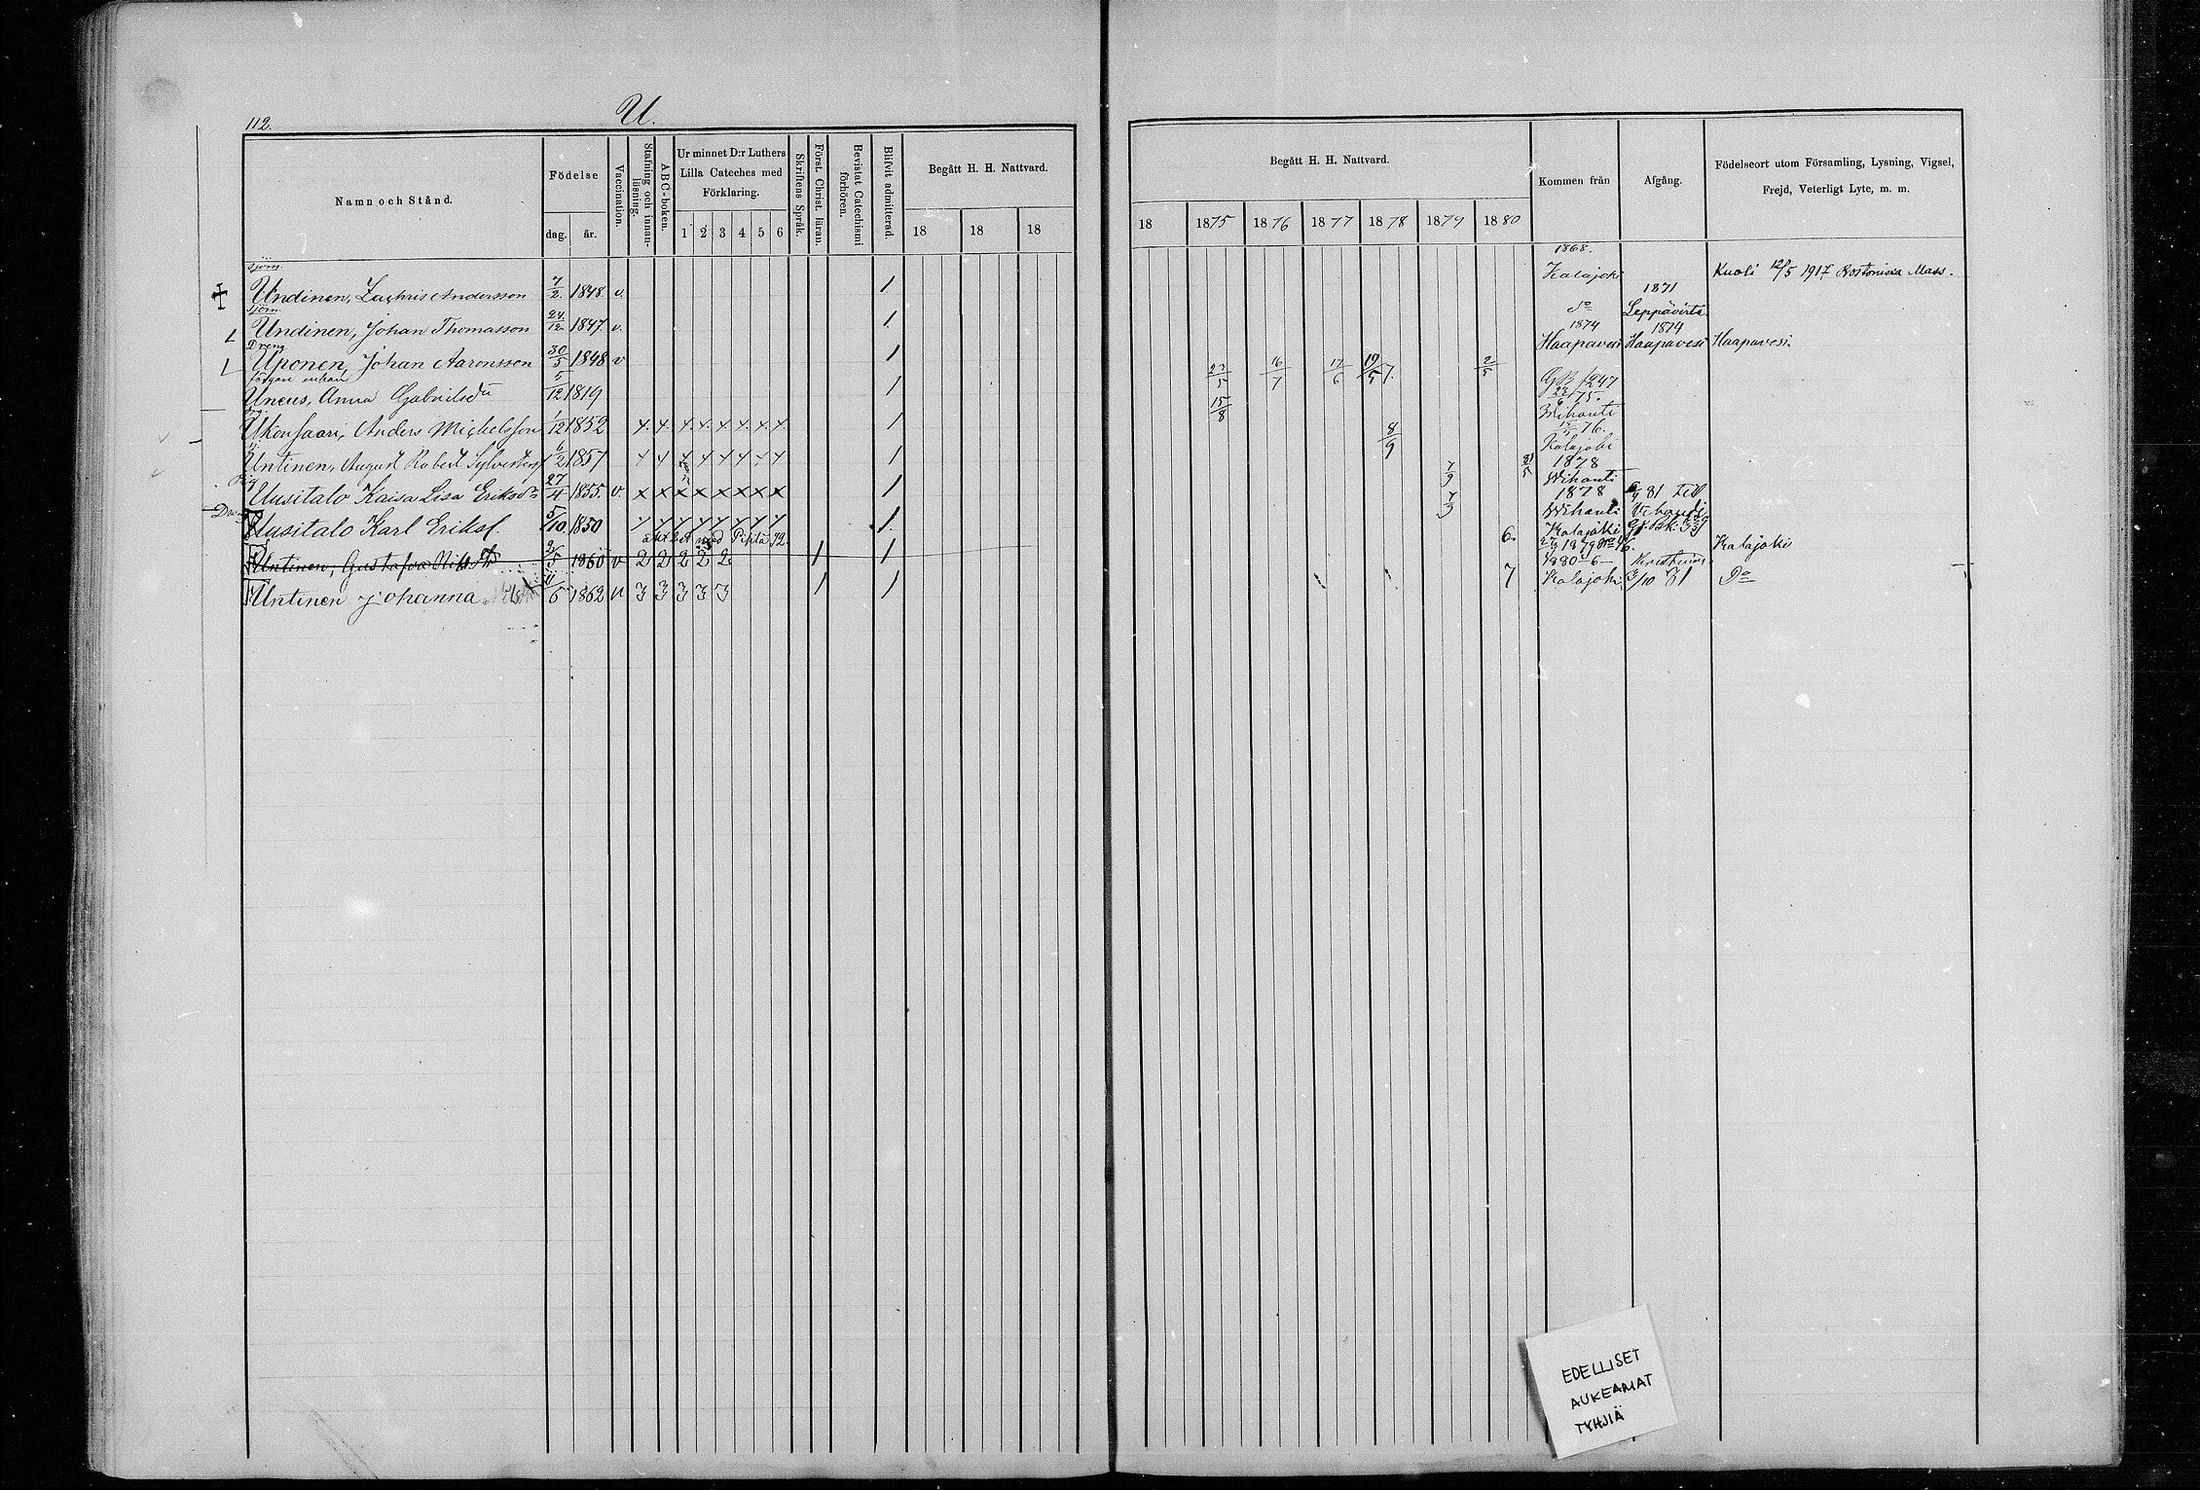 112.
U.
Namn och Stånd.
Födelse
dag.
år.
Vaccination.
Stafning och innan-
läsning.
ABC-boken.
Ur minnet D:r Luthers
Lilla Cateches med
Förklaring.
1 2 3 4 5 6
Skriftens Språk.
Först. Christ. läran.
Bevistat Catechismi
förhören.
Blifvit admitterad.
Begått H. H. Nattvard.
18 18 18
Begått H. H. Nattvard.
18 1875 1876 1877 1878 1879 1880
Kommen från
Afgång.
Födelseort utom Församling, Lysning, Vigsel,
Frejd, Veterligt Lyte, m. m.
Undinen, Zachris Andersson 7/2 1848 v. 1 1868. Kalajoki Kuoli 12/5 1917 Bostonissa Mass.
Undinen, Johan Thomasson 24/12 1847 v. 1 do 1871 Leppävirta
Dreng
Uponen, Johan Aaronsson 30/5 1848 v 1 1874 Haapavesi 1874 Haapavesi Haapavesi.
Uneus, Anna Gabrielsdr 5/12 1819 1 23/5 16/7 17/6 19/5 7. 2/5 GB /247
Ukonsaari, Anders Michelsson 1/12 1852 1 15/8 75. Wihanti
Untinen, August Robert Sylvesters 6/2 1857 1 8/9 76. Kalajoki
Uusitalo Kaisa Lisa Eriksdr 27/4 1855. v. x x x x x x x x 1 7/9 1878 Wihanti 81
Dreng
Uusitalo Karl Eriksf. 5/10 1850 1. 7/3 1878 Wihanti
Untinen, Gustafva 2/5 1860 v 2 2 2 2 2 1 1 6. Kalajoki 1879 Kalajoki
Untinen Johanna 6 1862 v 3 3 3 3 3 1 1 7 1880 Kalajoki 3/10 81 Do
EDELLISET
AUKEAMAT
TYHJIÄ